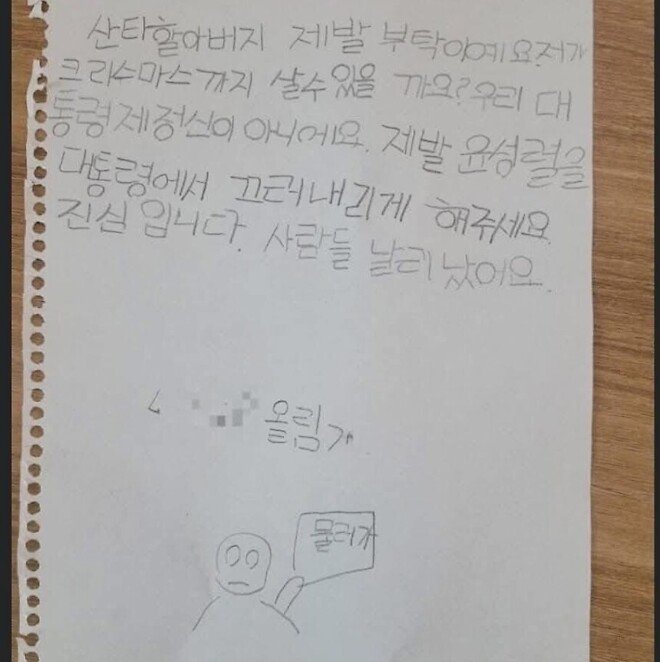 산타할아버지 제발 부탁이예요.저가
크리수마스까지 살수 있을 까요? 우리 대
통령제정신이 아니에요. 제발 윤성렬을
대통령에서 끄터내리게 해주세요.
진심 입니다. 사람들 날리 났어요.
올림
물러가